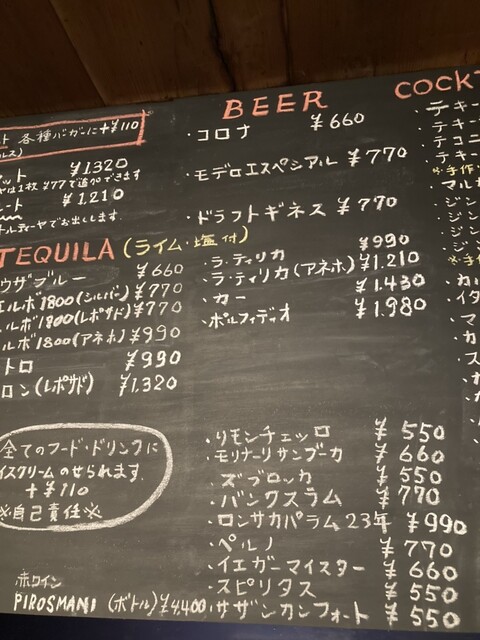 ト 各種バガーに+¥110
ルス)
ット ¥1.320
ヤは1枚¥77で追加できます
ート ¥1.210
トルティーヤでお出しします。
TEQUILA (ライム・塩付)
ウザブルー ¥660
エルボ1800(シルバー) ¥770
ルボ1800(レポサド) ¥770
ルボ1800(アネホ) ¥990
トロ ¥990
ロン(レポサド) ¥1.320
全てのフード・ドリンクに
イスクリームのせられます.
+¥110
※自己責任※
赤ワイン
PIROSMANI (ボトル) ¥4,400
BEER
・コロナ ¥660
・モデロエスペシアル ¥770
・ドラフトギネス ¥770
・ラ・ティリカ ¥990
・ラ・ティリカ(アネホ) ¥1.210
・カー ¥1.430
・ポルフィディオ ¥1.980
・リモンチェッロ ¥550
・モリナーリサンブーカ ¥660
・ズブロッカ ¥550
・パンクスラム ¥770
・ロンサカパラム23年 ¥990
・ペルノ ¥770
・イエガーマイスター ¥660
・スピリタス ¥550
・サザンカンフォート ¥550
COCKT
・テキー
・テキー
・テコニ
・テキー
※手作
・マルガ
・ジン
・ジン
・ジン
・ジン
※手作
・カル
・イタ
・マ
・カ
・ス